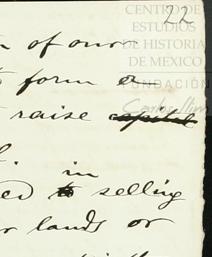 22
CENTRO DE
ESTUDIOS
DE HISTORIA
DE MEXICO
FUNDACIÓN
Carlos Slim
of our
form a
raise capital
in
ed to selling
lands or